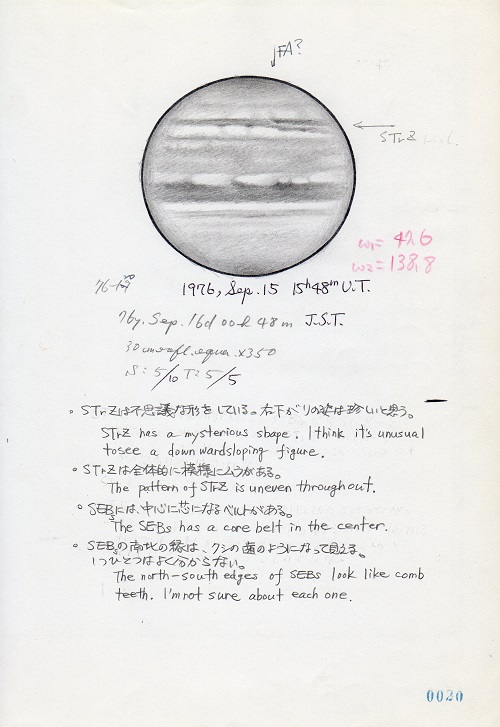 FA?
STrZ
ω1= 42.6
ω2= 138.8
1976, Sep. 15 15h48m U.T.
76y. Sep. 16d 00h 48m J.S.T.
30cm refl. equa. x350
S: 5/10 T: 5/5
。STrZは不思議な形をしている。右下がりの姿は珍しいと思う。
STrZ has a mysterious shape. I think it's unusual
to see a downwardsloping figure.
。STrZは全体的に模様にムラがある。
The pattern of STrZ is uneven throughout.
。SEBsには、中心に芯になるベルトがある。
The SEBs has a core belt in the center.
。SEBsの南北の縁は、クシの歯のようになって見える。
1つひとつはよく分からない。
The north-south edges of SEBs look like comb
teeth. I'm not sure about each one.
0020